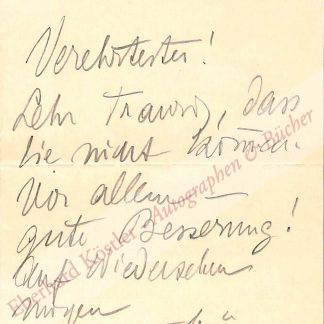 Verehrtester!
Sehr traurig, dass
Sie nicht können.
Vor allem
gute Besserung!
Auf Wiedersehen
morgen
Eberhard Köstler - Autographen & Bücher